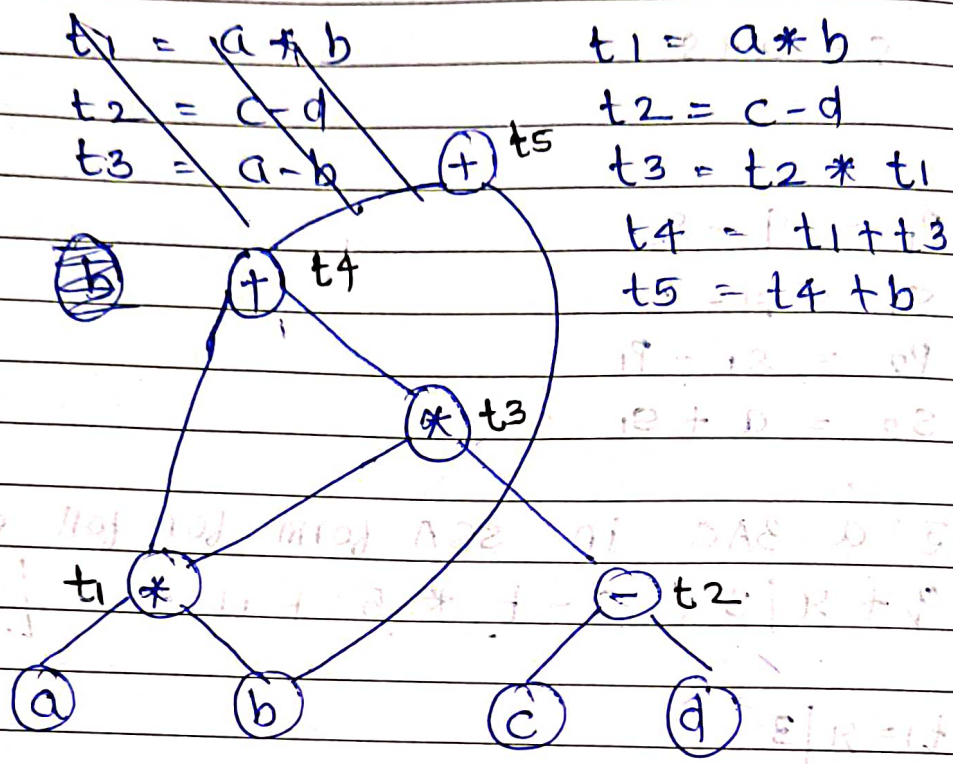 t1 = a * b
t2 = c - d
t3 = a - b
t1 = a * b
t2 = c - d
t3 = t2 * t1
t4 = t1 + t3
t5 = t4 + b
+ t5
b
+ t4
* t3
t1 *
- t2
a b c d